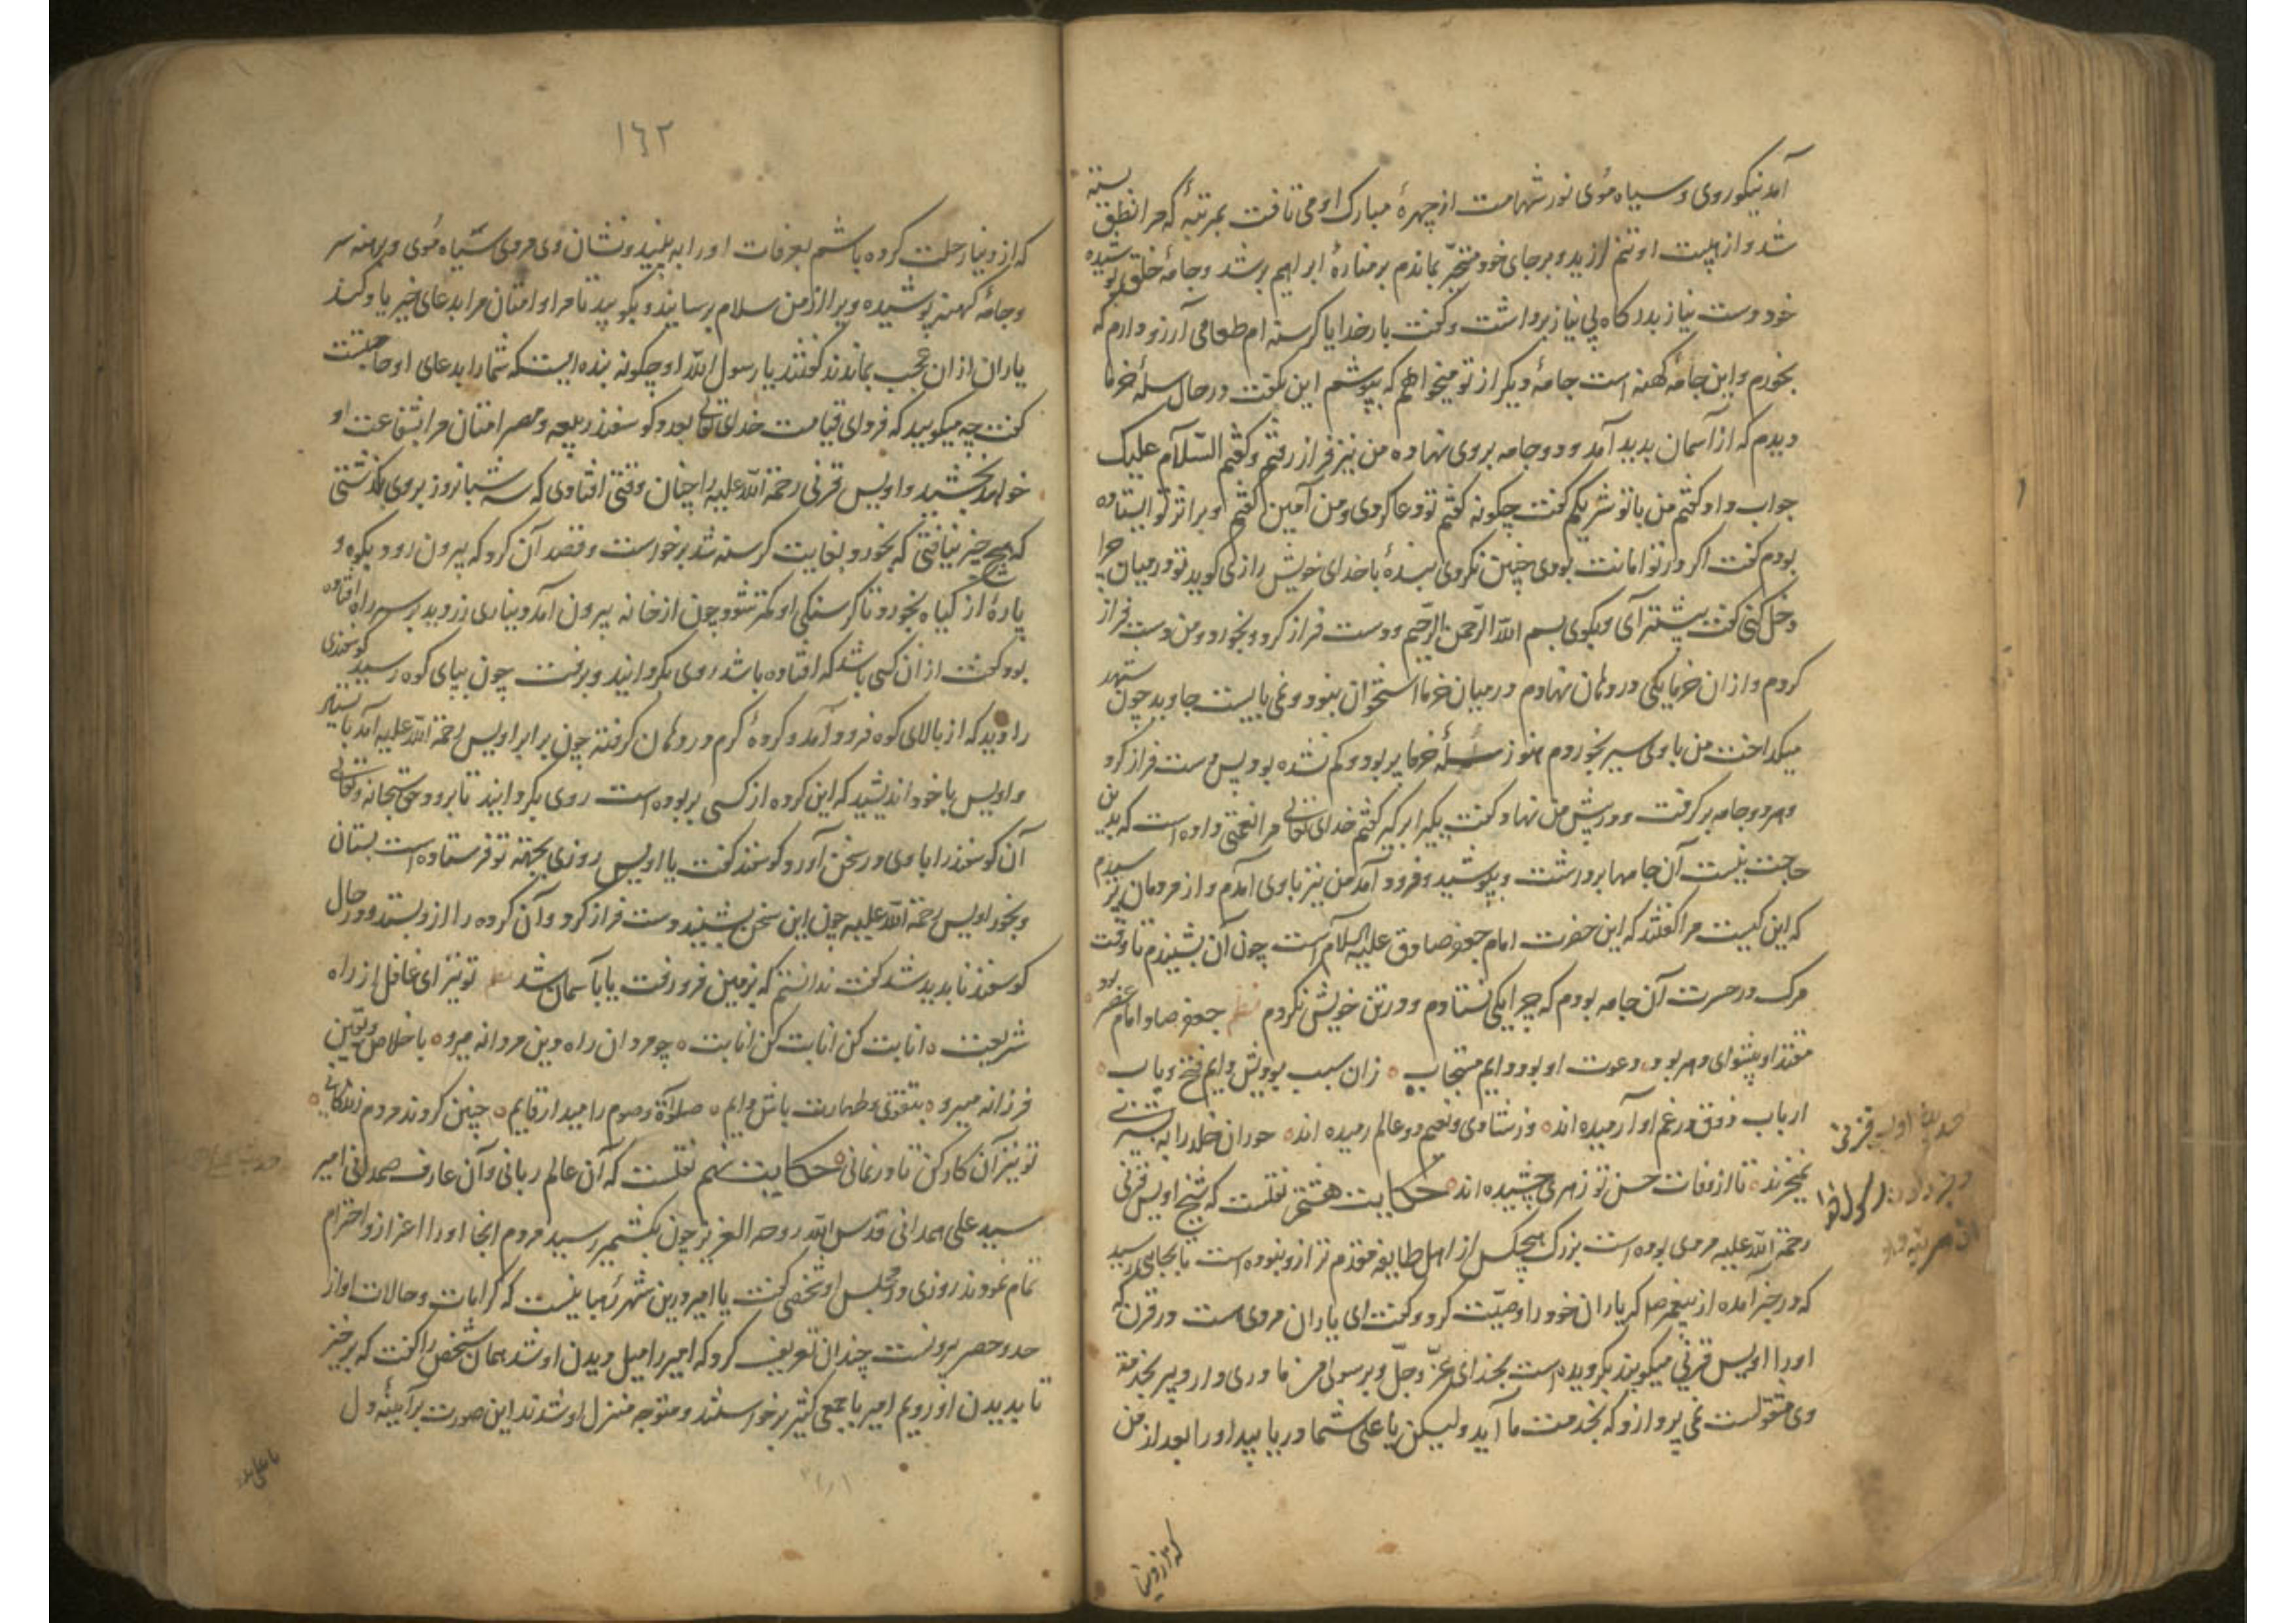 آمد نیکو روی و سیاه موی نور شهامت از چهرهٔ مبارک او می تافت بمرتبهٔ که مرا نطق بسته
شد و از هیبت او تنم لرزید و برجای خود متحیّر بماندم بر منارهٔ ابراهیم بر شد و جامهٔ خلق پوشیده
خود دست نیاز بدرگاه بی نیاز برداشت و گفت بار خدایا گرسنه ام طعامی آرزو دارم که
بخورم و این جامه کهنه است جامهٔ دیگر از تو میخواهم که بپوشم این بگفت در حال سلهٔ خرما
دیدم که از آسمان بدید آمد و دو جامه بروی نهاده من نیز فراز رفتم و گفتم السّلام علیک
جواب داد گفتم من با تو شریکم گفت چگونه گفتم تو دعا کردی و من آمین گفتم و برابر تو ایستاده
بودم گفت اگر در تو امانت بودی چنین نکردی بندهٔ با خدای خویش رازی گوید تو در میان چرا
دخل کنی گفت پیشتر آی و بگوی بسم الله الرّحمن الرّحیم و دست فراز کرد و بخورد و من دست فراز
کردم و از آن خرما یکی در دهان نهادم در میان خرما استخوان نبود و نمی بایست جاوید چون شهد
میگداخت من با وی سیر بخوردم هنوز سلهٔ خرما پر بود و کم نشده بود پس دست فراز کرد
و هر دو جامه برگرفت و در پیش من نهاد و گفت یکی را بر گیر گفتم خدای تعالی مرا نعمتی داده است که بدین
حاجت نیست آن جامها برداشت و بپوشید و فرود آمد من نیز با وی آمدم و از مردمان پرسیدم
که این کیست مرا گفتند که این حضرت امام جعفر صادق علیه السلام است چون آن بشنیدم تا وقت
مرگ در حسرت آن جامه بودم که چرا یکی نستادم و در تن خویش نکردم نظم جعفر صادق امام عصر بود
مقتدا و پیشوای دهر بود دعوت او بود دایم مستجاب زان سبب بودیش دایم فتح و باب
ارباب ذوق در غم او آرمیده اند وز شادی و نعیم دو عالم رمیده اند حوران خلد را به پشیزی
نمیخرند تا از صفات حسن تو رمزی چشیده اند حکایت هشتم نقلست که شیخ اویس قرنی
رحمة الله علیه مردی بوده است بزرگ هیچکس از اهل طایفه مقدم تر از او نبوده است تا بجایی رسید
که در خبر آمده از پیغمبر صلعم که یاران خود را وصیّت کرد و گفت ای یاران مردی است در قرن که
او را اویس قرنی میگویند بگرویده است بخدای عزّ و جلّ و برسولی من مادری دارد پیر بخدمت
وی مشغولست نمی پردازد که بخدمت ما آید ولیکن یا علی شما دریابید او را بعد از من
که از دنیا
١٦٢
که از دنیا رحلت کرده باشم بعرفات او را به بینید و نشان وی مردی سیاه موی و برهنه سر
و جامهٔ کهنه پوشیده ویرا از من سلام برسانید و بگویید تا مرا و امتان مرا بدعای خیر یاد کند
یاران از آن عجب بماندند گفتند یا رسول الله او چگونه بنده ایست که شما را بدعای او حاجتست
گفت چه میگویید که فردای قیامت خدای تعالی بعدد گوسفند ربیعه و مضر امتان مرا بشفاعت او
خواهد بخشید و اویس قرنی رحمة الله علیه را چنان وقتی افتادی که سه شبانروز بروی بگذشتی
که هیچ چیز نیافتی که بخورد بغایت گرسنه شد برخواست و قصد آن کرد که بیرون رود بکوه و
پارهٔ از گیاه بخورد تا گرسنگی او کمتر شود چون از خانه بیرون آمد دیناری زر دید بر سر راه افتاده
بود گفت از آن کسی باشد که افتاده باشد روی بگردانید و برفت چون بپای کوه رسید گوسفندی
را دید که از بالای کوه فرود آمد و گردهٔ گرم در دهان گرفته چون برابر اویس رحمة الله علیه آمد بایستاد
و اویس با خود اندیشید که این گرده از کسی بربوده است روی بگردانید تا برود حق سبحانه و تعالی
آن گوسفند را با وی در سخن آورد گوسفند گفت یا اویس روزی بجهة تو فرستاده است بستان
و بخور اویس رحمة الله علیه چون این سخن بشنید دست فراز کرد و آن گرده را از او بستد و در حال
گوسفند ناپدید شد گفت ندانستم که بزمین فرو رفت یا بآسمان شد نظم تو نیز ای غافل از راه
شریعت انابت کن انابت کن انابت چو مردان راه دین مردانه میرو باخلاص و یقین
فرزانه میرو بتقوی و طهارت باش دایم صلوة و صوم را میدار قایم چنین کردند مردم زندگانی
تو نیز آن کار کن تا در نمانی حکایت نهم نقلست که آن عالم ربانی و آن عارف صمدانی امیر
سید علی همدانی قدس الله روحه العزیز چون بکشمیر رسید مردم آنجا او را اعزاز و احترام
تمام نمودند روزی در مجلس او شخصی گفت یا امیر درین شهر رهبانیست که کرامات و حالات او از
حد و حصر برونست چندان تعریف کرد که امیر را میل دیدن او شد همان شخص را گفت که برخیز
تا بدیدن او رویم امیر با جمعی کثیر برخواستند و متوجه منزل او شدند این صورت بر آینهٔ دل